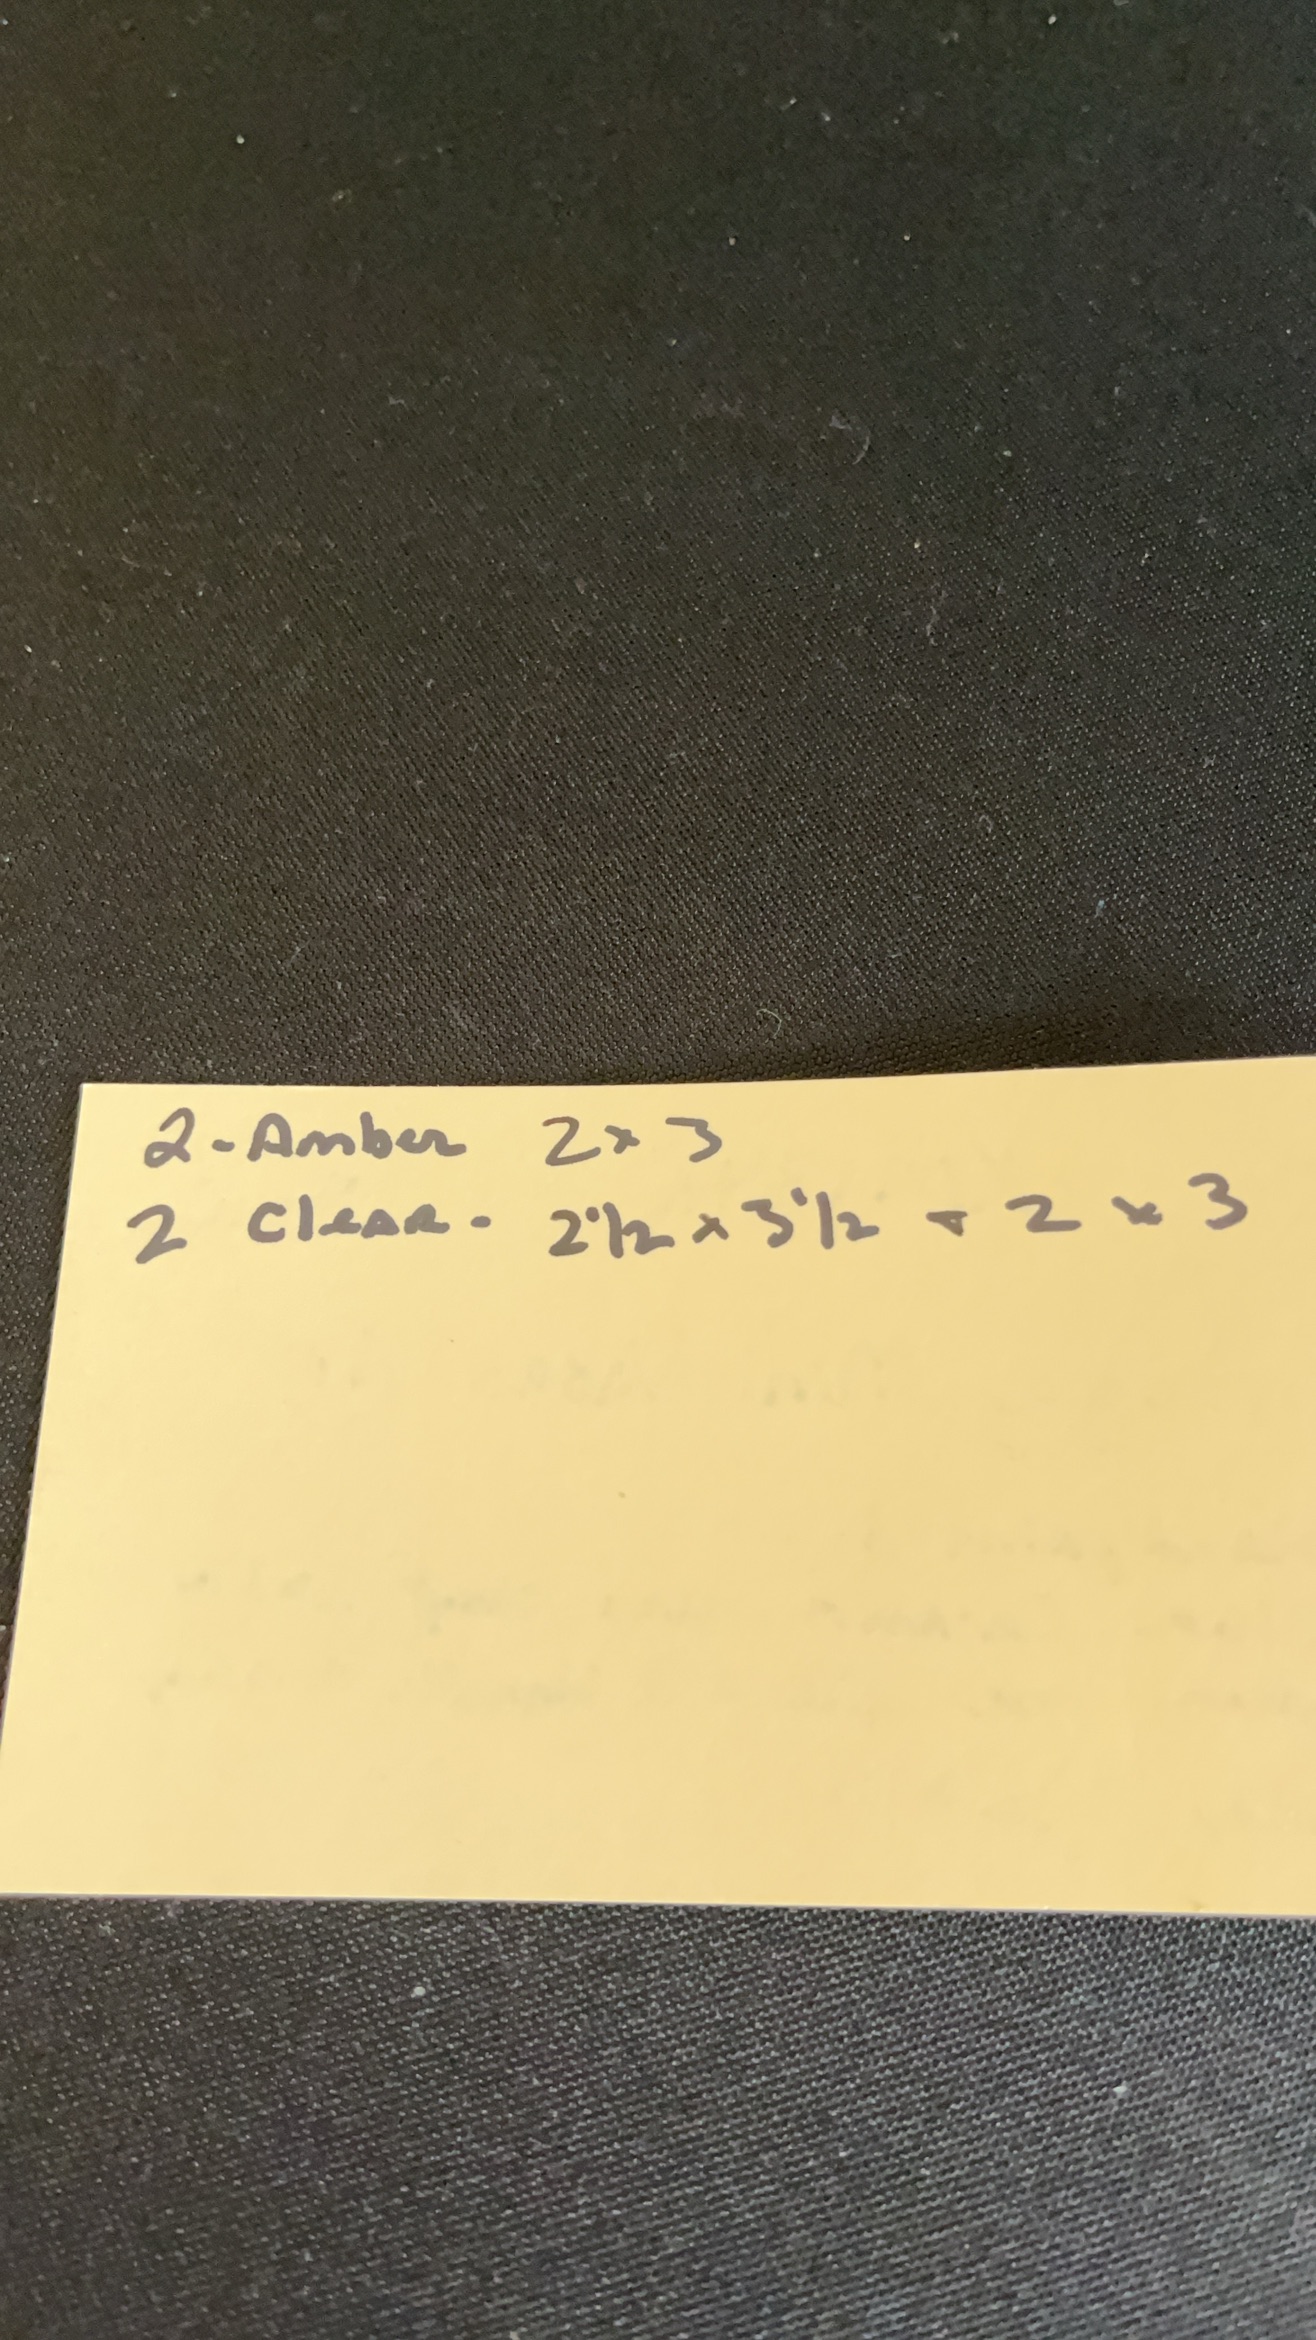 2-Amber 2x3
2 Clear- 2 1/2 x 3 1/2 + 2 x 3